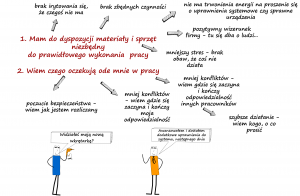 brak irytowania się,
że czegoś nie ma
brak zbędnych czynności
nie ma trwonienia energii na proszenie się
o sprawienie systemowe czy sprawne
urządzenia
pozytywny wizerunek
firmy - tu się dba o ludzi...
1. Mam do dyspozycji materiały i sprzęt
niezbędny
do prawidłowego wykonania pracy
mniejszy stres - brak
obaw, że coś nie
działa
2. Wiem czego oczekują ode mnie w pracy
poczucie bezpieczeństwa -
wiem jak jestem rozliczany
mniej konfliktów -
wiem gdzie się
zaczyna i kończy
moja
odpowiedzialność
mniej konfliktów -
wiem gdzie się zaczyna
i kończy
odpowiedzialność
innych pracowników
szybsze działanie -
wiem kogo, o co
prosić
Widziałeś moją nową
wkrętarkę?
dodatkowe uprawnienia do
systemu, następnego dnia